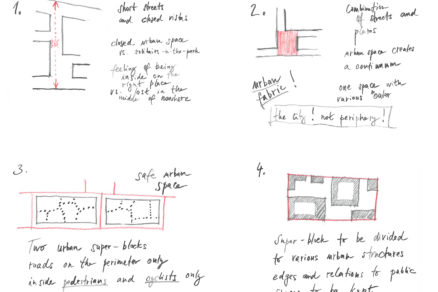 1.
short streets
and closed vistas
closed urban space
vs. solitairs-in-the-park
feeling of being
inside on the
right place
vs. lost in the
middle of nowhere
2.
Combination
of streets and
plazas
urban space creates
a continuum
urban
fabric!
one space with
various
the city! not periphery!
3.
safe urban
space
Two urban super-blocks
roads on the perimeter only
inside pedestrians and cyclists only
4.
Super-block to be divided
to various urban structures
edges and relations to public
space to be kept